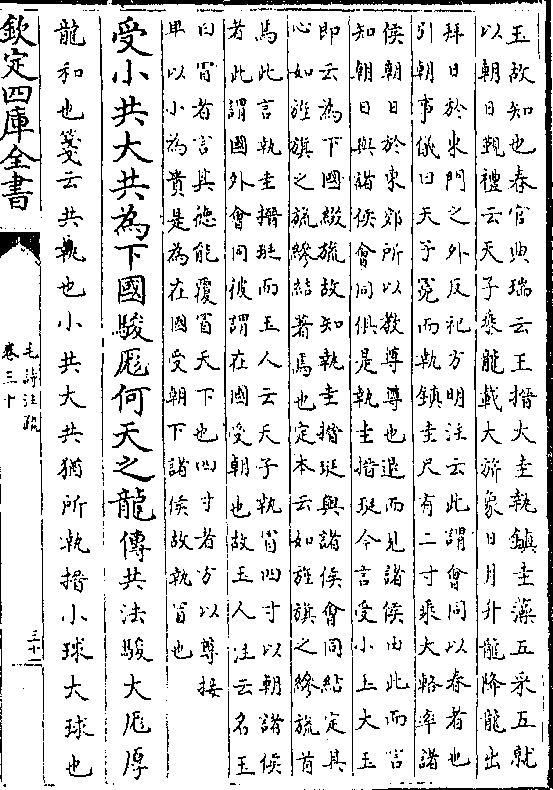 玉故知也春官典瑞云王搢大圭執鎮圭藻五采五就
以朝日覲禮云天子乘龍載大旂象日月升龍降龍出
拜日於東門之外反祀方明注云此謂會同以春者也
引朝事儀曰天子冕而執鎮圭尺有二寸乘大輅率諸
侯朝日於東郊所以教尊尊也退而見諸侯由此而言
知朝日與諸侯會同俱是執圭搢珽今言受小玉大玉
即云為下國綴旒故知執圭搢珽與諸侯會同結定其
心如旌旗之旒縿結著焉也定本云如旌旗之縿旒首
焉此言執圭搢珽而玉人云天子執冒四寸以朝諸侯
者此謂國外會同彼謂在國受朝也故玉人注云名玉
曰冒者言其德能覆冒天下也四寸者方以尊接
卑以小為貴是為在國受朝下諸侯故執冒也
受小共大共為下國駿厖何天之龍傳共法駿大厖厚
龍和也箋云共執也小共大共猶所執搢小球大球也
欽定四庫全書
毛詩注疏
卷三十
三十二